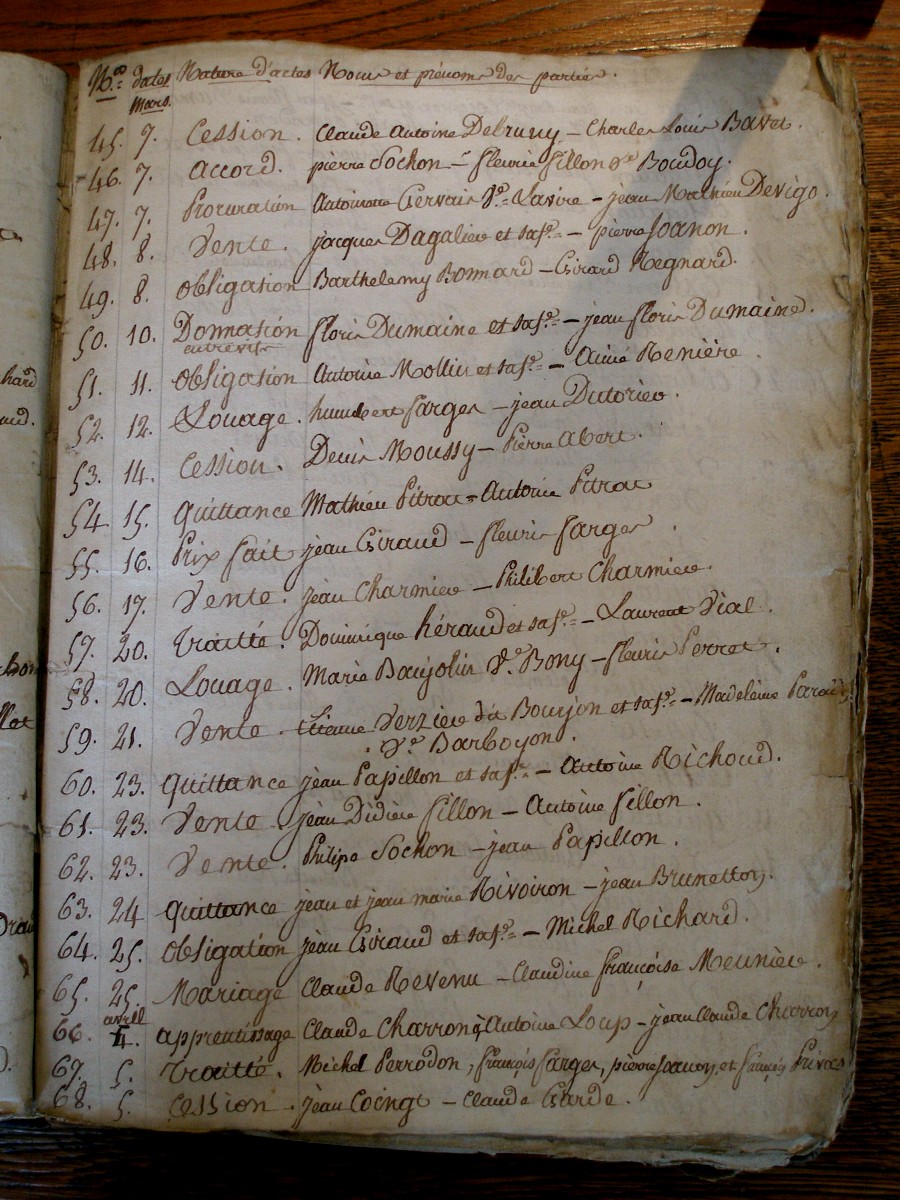 N.os dates Nature d'actes Noms et prénoms des parties.
Mars.
45. 7. Cession. Claude Antoine Delruny – Charles Louis Bavet.
46. 7. accord. pierre Sochon – fleurie fillon Ve Boudoy.
47. 7. Procuration Antoinette Gervais Ve Lavire – jean Mathieu Devigo.
48. 8. Vente. jacques Dagalier et sa fe – pierre Joanon.
49. 8. obligation Barthelemy Bonnard – Girard Regnard.
50. 10. Donnation floris Dumaine et sa fe – jean floris Dumaine.
entrevifs
51. 11. obligation Antoine Mollin et sa fe – Aimé Renière.
52. 12. Louage. humbert farges – jean Dutorieo.
53. 14. Cession. Denis Moussy – Pierre Abert.
54 15. quittance Mathieu Pitrat – Antoine Pitrat
55. 16. Prix fait jean Giraud – fleuris farges.
56. 17. Vente. jean Charmiere – Philibert Charmiere.
57. 20. traitté. Dominique héraud et sa fe – Laurent Vial.
58. 20. Louage. Marie Baujolin Ve Bony – fleuris Perret.
59. 21. Vente. Etienne Verziere dit Bourjon et sa fe – Madelème
Ve Barboyon.
60. 23. quittance jean Papillon et sa fe – Antoine Richoud.
61. 23. Vente. jean Didier fillon – Antoine fillon.
62. 23. Vente. Philipe Sochon – jean Papillon.
63. 24 quittance jean et jean marie Rivoiron – jean Brunetton.
64. 25. obligation jean Giraud et sa fe – Michel Richard.
65. 25. Mariage Claude Revenu – Claudine françoise Meunière.
avril
66. 4. apprentissage Claude Charron, Antoine Loup – jean Claude Charron
67. 5. traitté. Michel Perrodon, françois farges, pierre Joanon, et françois Privas
68. 5. Cession. jean Coingt – Claude Garde.